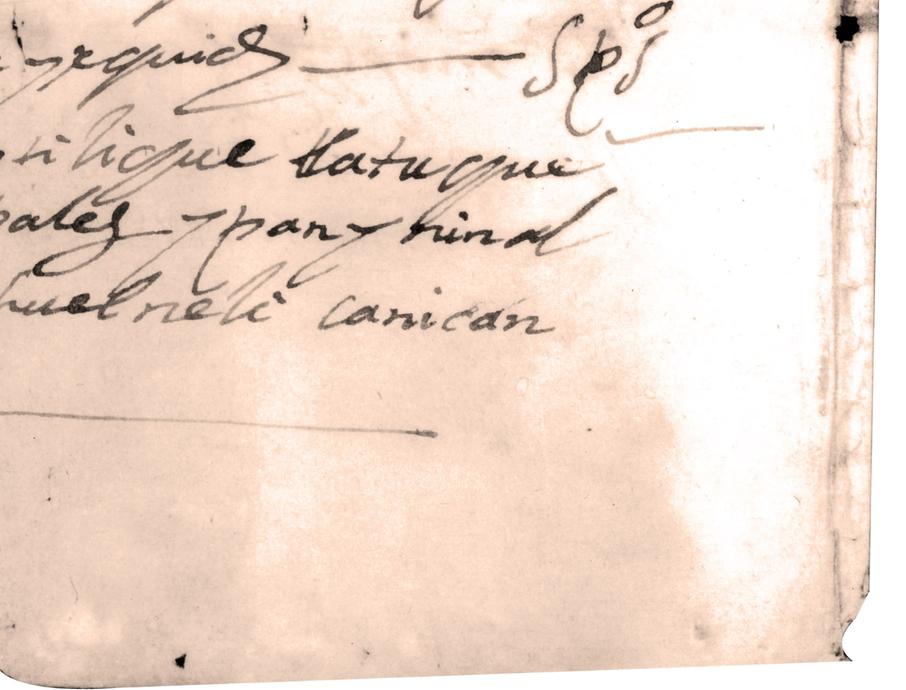 yequid Sp̄s
tilique tlatuque
pales ypan ynin al
huel neli canican